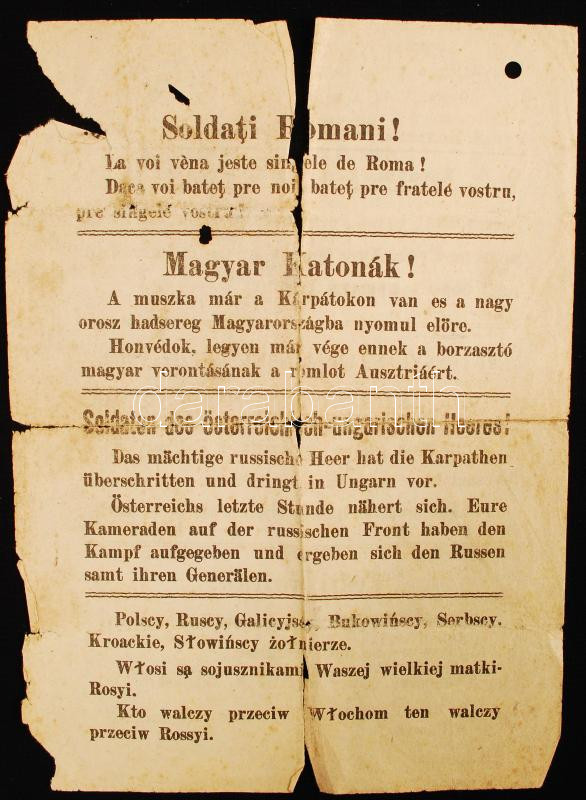 Soldați Romani!
La voi vèna jeste singele de Roma!
Daca voi bateț pre noi, bateț pre fratelé vostru,
pre singelé vostru!
Magyar Katonák!
A muszka már a Kárpátokon van es a nagy
orosz hadsereg Magyarországba nyomul elöre.
Honvédok, legyen már vége ennek a borzasztó
magyar verontásának a romlot Ausztriáért.
darabanth
Soldaten des österreichisch-ungarischen Heeres!
Das mächtige russische Heer hat die Karpathen
überschritten und dringt in Ungarn vor.
Österreichs letzte Stunde nähert sich. Eure
Kameraden auf der russischen Front haben den
Kampf aufgegeben und ergeben sich den Russen
samt ihren Generälen.
Polscy, Ruscy, Galicyjscy, Bukowińscy, Serbscy,
Kroackie, Słowińscy żołnierze.
Włosi są sojusznikami Waszej wielkiej matki-
Rosyi.
Kto walczy przeciw Włochom ten walczy
przeciw Rossyi.